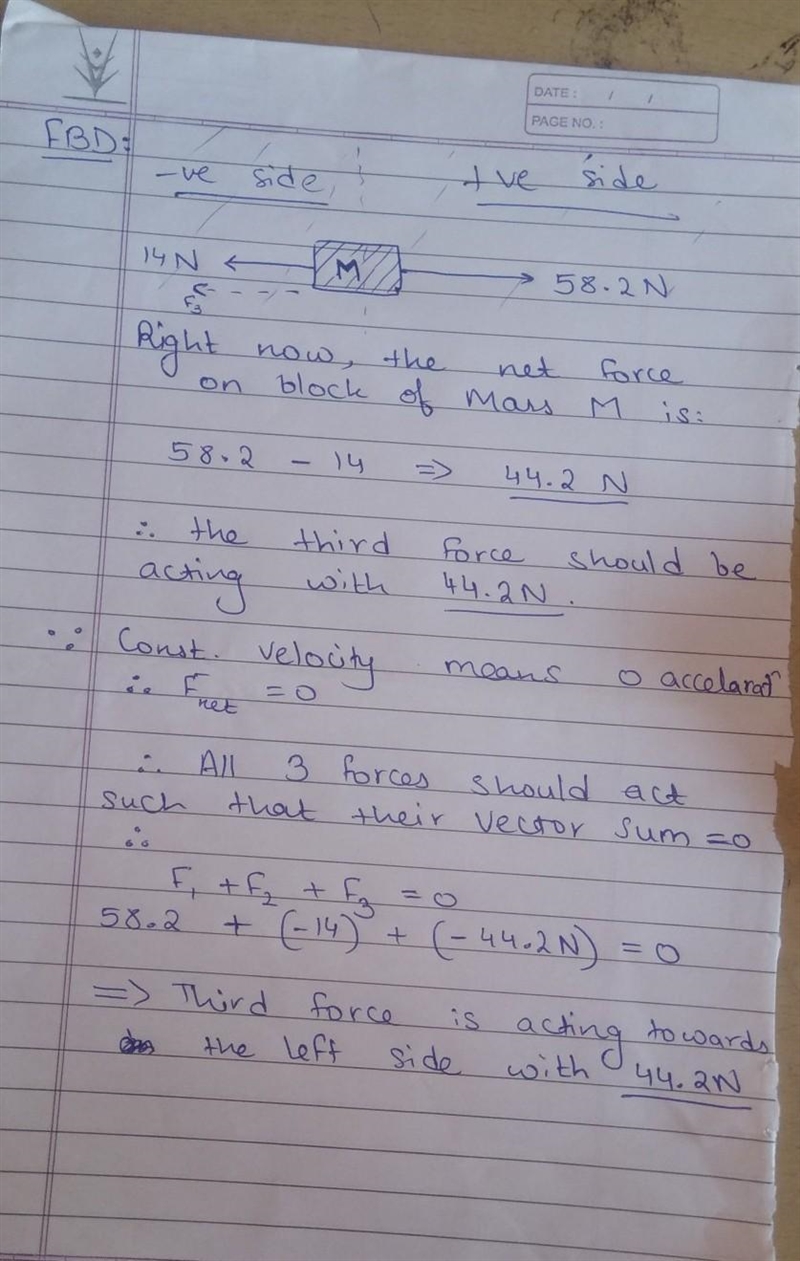 DATE : / /
PAGE NO. :
FBD:
-ve side +ve side
14N M 58.2N
F3
Right now, the net force
on block of Mass M is:
58.2 - 14 => 44.2 N
∴ the third force should be
acting with 44.2N.
∵ Const. velocity means 0 accelarat
∴ Fnet = 0
∴ All 3 forces should act
such that their vector sum = 0
∴
F1 + F2 + F3 = 0
58.2 + (-14) + (-44.2N) = 0
=> Third force is acting towards
the left side with 44.2N